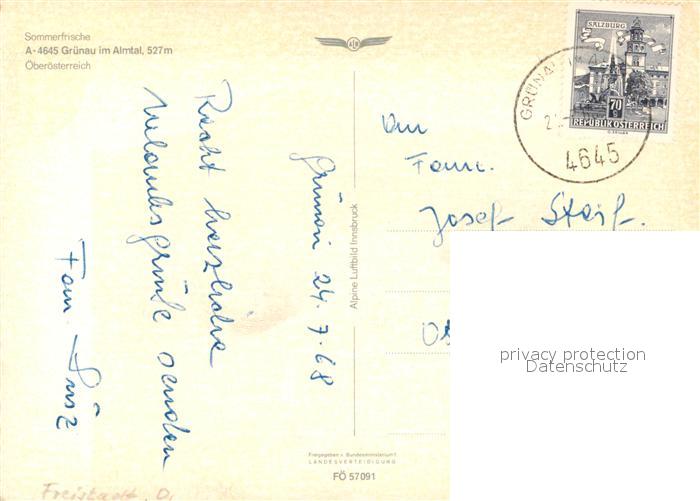 Sommerfrische
A-4645 Grünau im Almtal, 527m
Oberösterreich
SALZBURG
70
REPUBLIK ÖSTERREICH
GRÜNAU
4645
Grünau 24.7.68
Recht herzliche
Urlaubsgrüße senden
Fam.
An
Fam.
Josef
Alpine Luftbild Innsbruck
privacy protection
Datenschutz
Freigegeben v. Bundesministerium f.
LANDESVERTEIDIGUNG
FÖ 57091
Freistadt